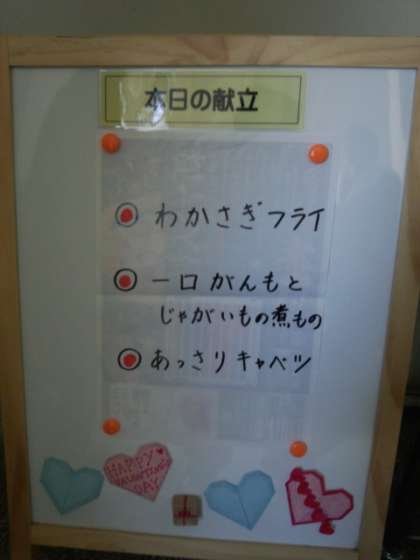 本日の献立
わかさぎフライ
一口がんもと
じゃがいもの煮もの
あっさりキャベツ
HAPPY
VALENTINE'S
DAY